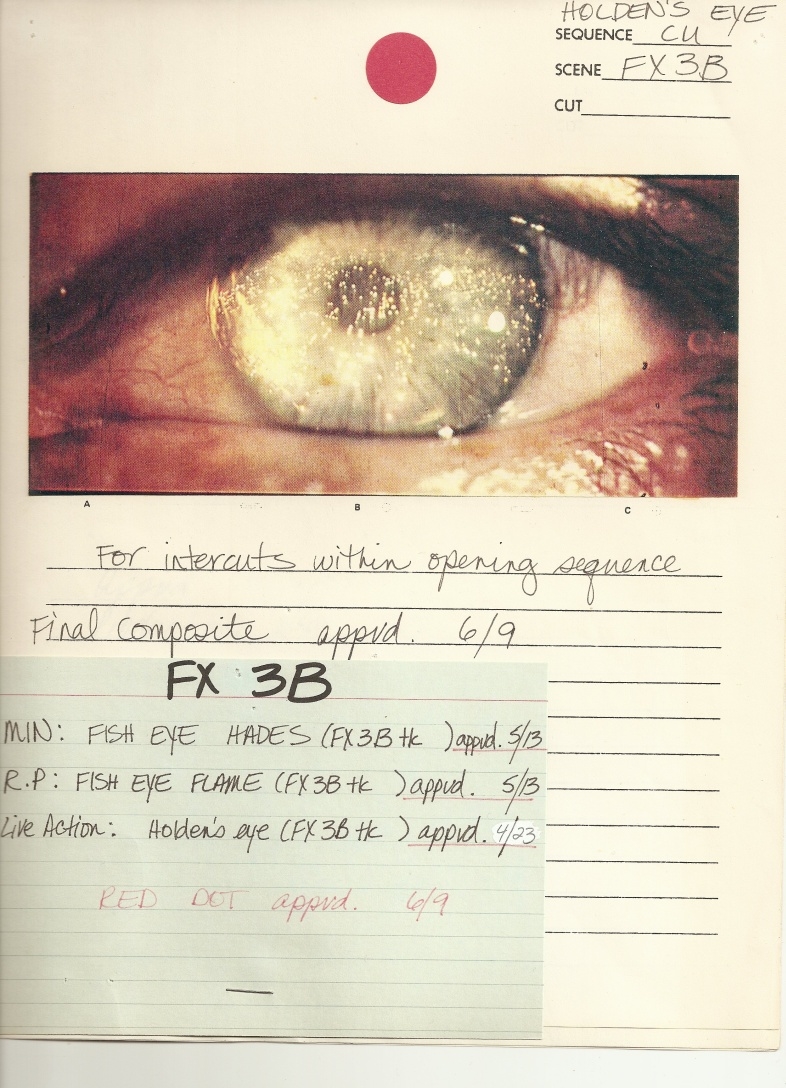 HOLDEN'S EYE
SEQUENCE CU
SCENE FX 3B
CUT
A B C
For intercuts within opening sequence
Final Composite appvd. 6/9
FX 3B
MIN: FISH EYE HADES (FX3B tk ) appvd. 5/13
R.P: FISH EYE FLAME (FX3B tk ) appvd. 5/13
Live Action: Holden's eye (FX3B tk ) appvd. 4/23
RED DOT appvd. 6/9